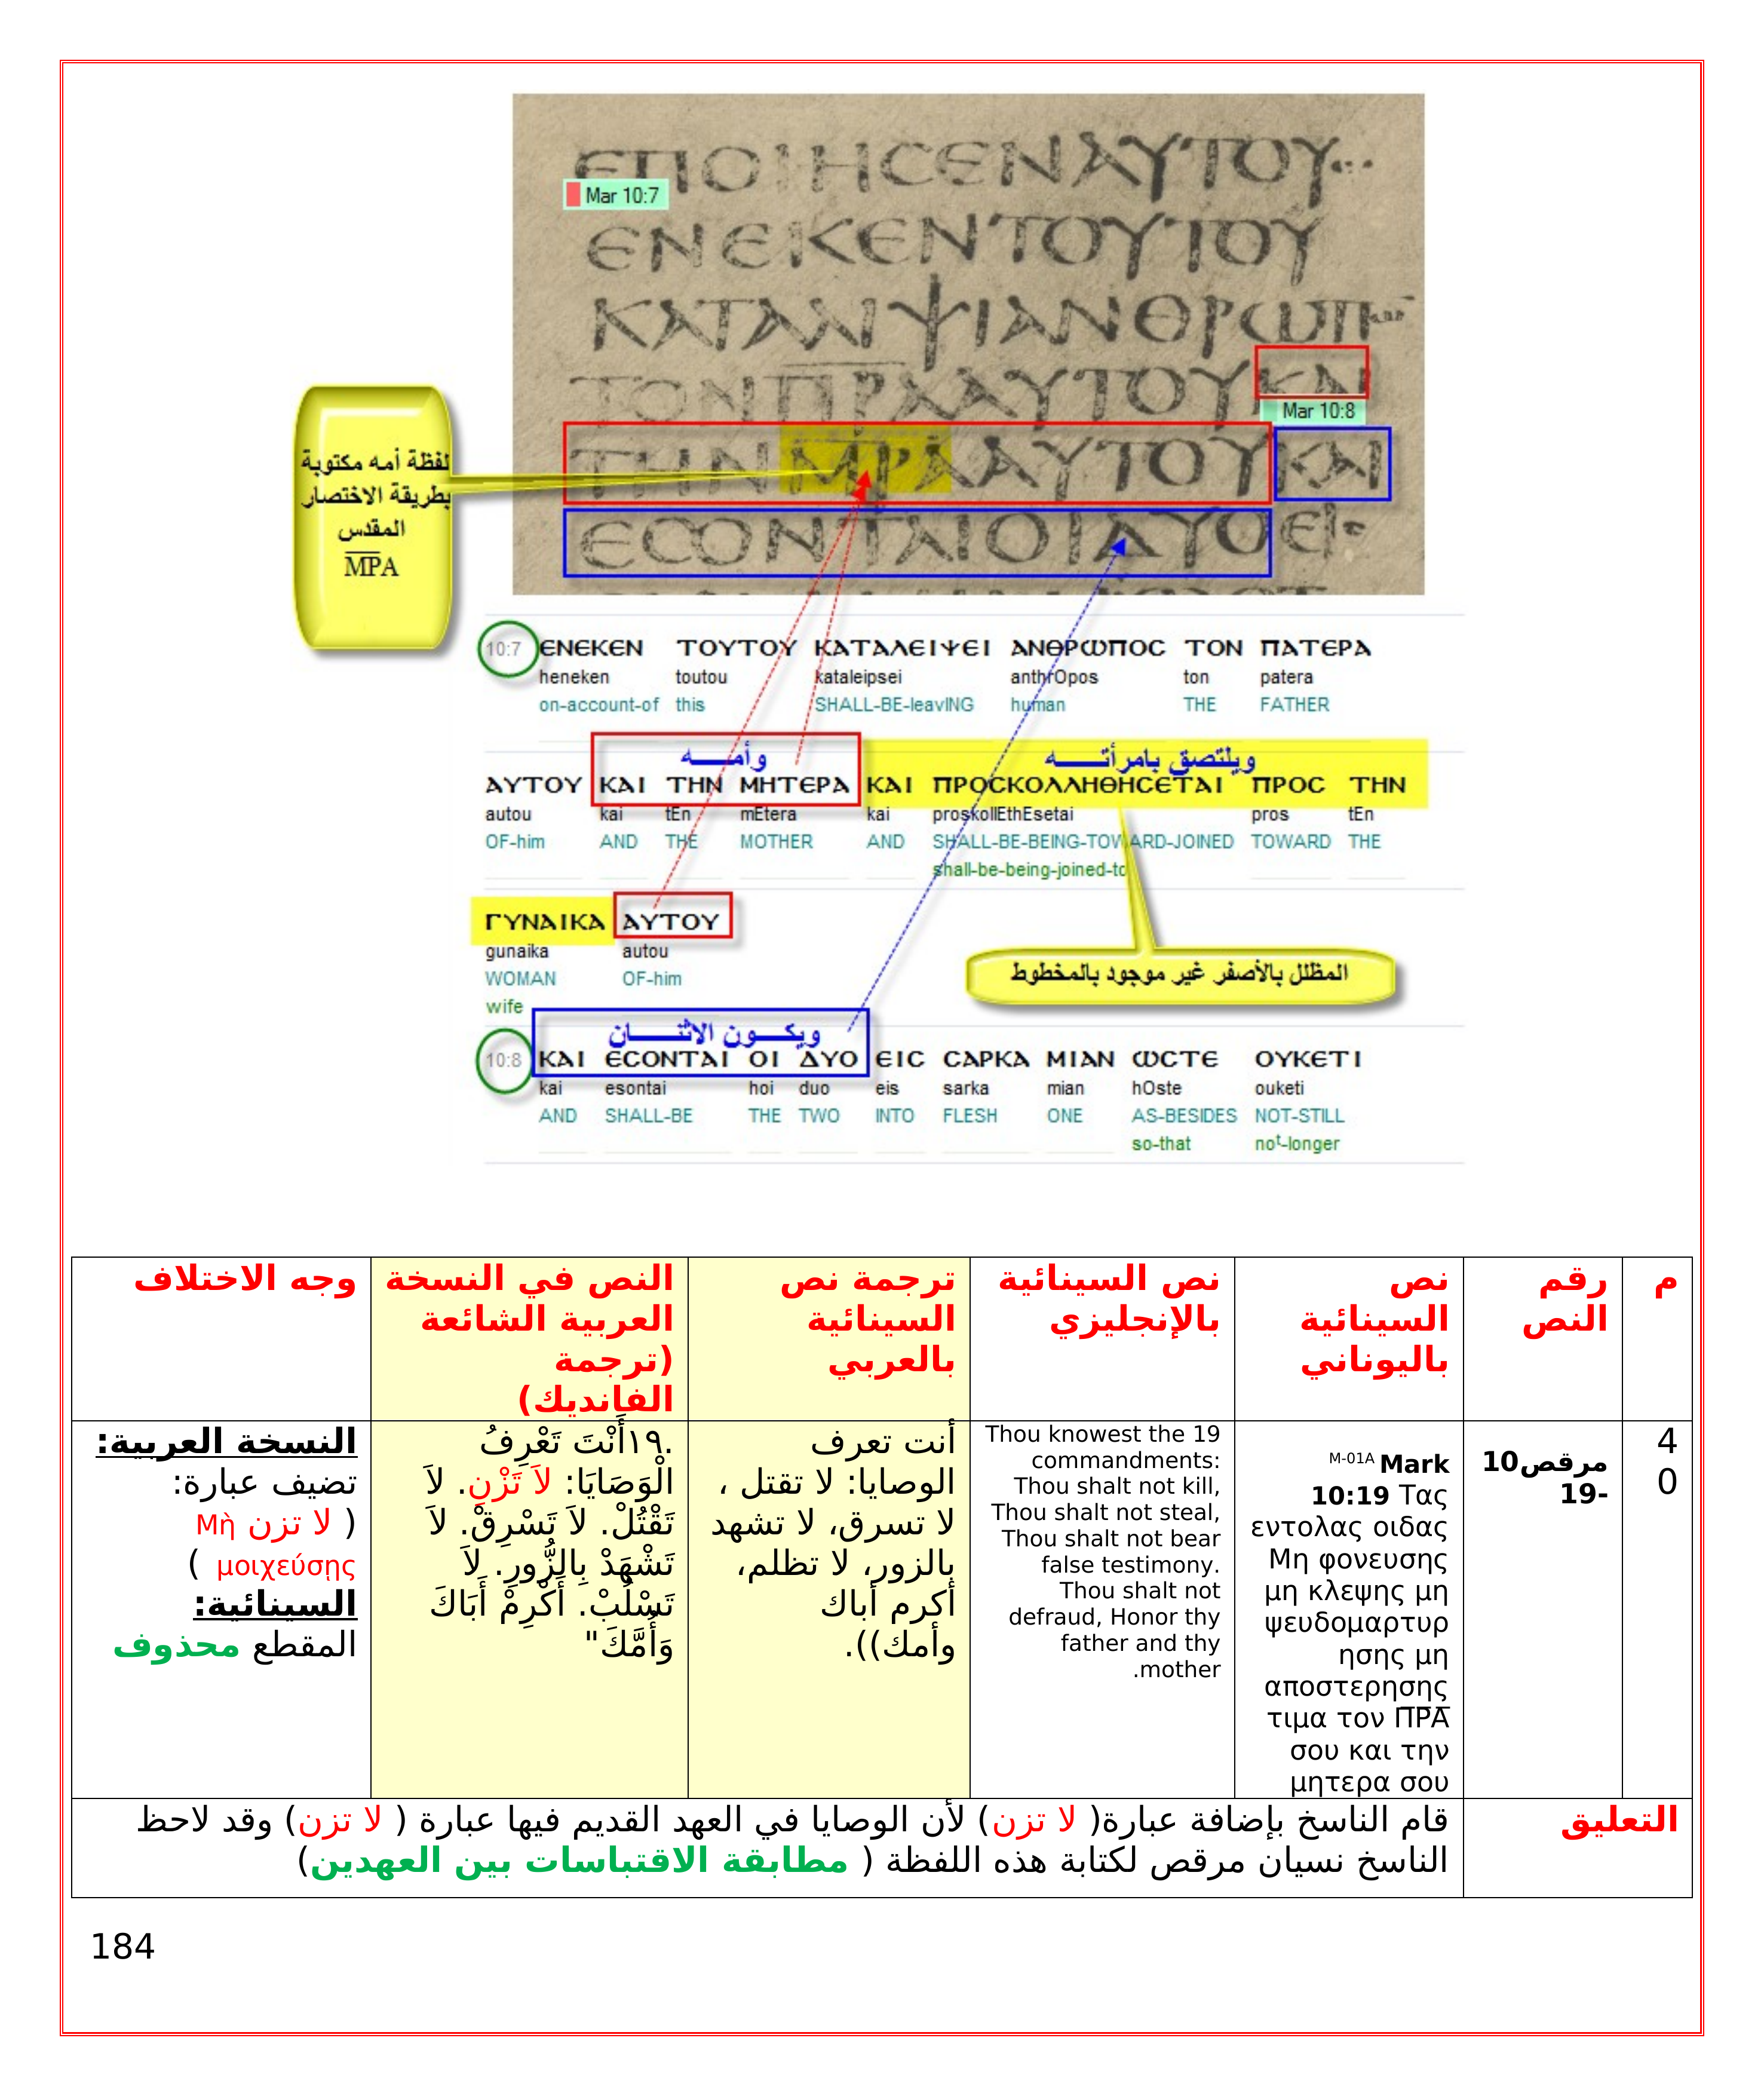 ЄΠΟΙΗϹЄΝΑΥΤΟΥ
Mar 10:7
ЄΝЄΚЄΝΤΟΥΤΟΥ
ΚΑΤΑΛΙΨΙΑΝΘΡΩΠ
ΤΟΝΠΡΑΑΥΤΟΥΚΑΙ
Mar 10:8
ΤΗΝΜΡΑΑΥΤΟΥΚΑΙ
ЄϹΟΝΤΑΙΟΙΔΥΟЄΙϹ
لفظة أمه مكتوبة
بطريقة الاختصار
المقدس
M̅P̅A
10:7 ЄΝЄΚЄΝ ΤΟΥΤΟΥ ΚΑΤΑΛЄΙΨЄΙ ΑΝΘΡΩΠΟϹ ΤΟΝ ΠΑΤЄΡΑ
heneken toutou kataleipsei anthrOpos ton patera
on-account-of this SHALL-BE-leavING human THE FATHER
وأمــــه ويلتصق بامرأتــــه
ΑΥΤΟΥ ΚΑΙ ΤΗΝ ΜΗΤЄΡΑ ΚΑΙ ΠΡΟϹΚΟΛΛΗΘΗϹЄΤΑΙ ΠΡΟϹ ΤΗΝ
autou kai tEn mEtera kai proskollEthEsetai pros tEn
OF-him AND THE MOTHER AND SHALL-BE-BEING-TOWARD-JOINED TOWARD THE
shall-be-being-joined-to
ΓΥΝΑΙΚΑ ΑΥΤΟΥ
gunaika autou
WOMAN OF-him
wife
المظلل بالأصفر غير موجود بالمخطوط
ويكــــون الاثنــــان
10:8 ΚΑΙ ЄϹΟΝΤΑΙ ΟΙ ΔΥΟ ЄΙϹ ϹΑΡΚΑ ΜΙΑΝ ΩϹΤЄ ΟΥΚЄΤΙ
kai esontai hoi duo eis sarka mian hOste ouketi
AND SHALL-BE THE TWO INTO FLESH ONE AS-BESIDES NOT-STILL
so-that not-longer
م
رقم
النص
نص
السينائية
باليوناني
نص السينائية
بالإنجليزي
ترجمة نص
السينائية
بالعربي
النص في النسخة
العربية الشائعة
(ترجمة
الفانديك)
وجه الاختلاف
4
0
مرقص10
-19
M-01A Mark
10:19 Τας
εντολας οιδας
Μη φονευσης
μη κλεψης μη
ψευδομαρτυρ
ησης μη
αποστερησης
τιμα τον Π̅Ρ̅Α̅
σου και την
μητερα σου
Thou knowest the 19
commandments:
Thou shalt not kill,
Thou shalt not steal,
Thou shalt not bear
false testimony.
Thou shalt not
defraud, Honor thy
father and thy
mother.
أنت تعرف
الوصايا: لا تقتل ،
لا تسرق، لا تشهد
بالزور، لا تظلم،
أكرم أباك
وأمك)).
.١٩أَنْتَ تَعْرِفُ
الْوَصَايَا: لاَ تَزْنِ. لاَ
تَقْتُلْ. لاَ تَسْرِقْ. لاَ
تَشْهَدْ بِالزُّورِ. لاَ
تَسْلُبْ. أَكْرِمْ أَبَاكَ
وَأُمَّكَ"
النسخة العربية:
تضيف عبارة:
( لا تزن Μὴ
μοιχεύσῃς )
السينائية:
المقطع محذوف
التعليق
قام الناسخ بإضافة عبارة( لا تزن) لأن الوصايا في العهد القديم فيها عبارة ( لا تزن) وقد لاحظ
الناسخ نسيان مرقص لكتابة هذه اللفظة ( مطابقة الاقتباسات بين العهدين)
184